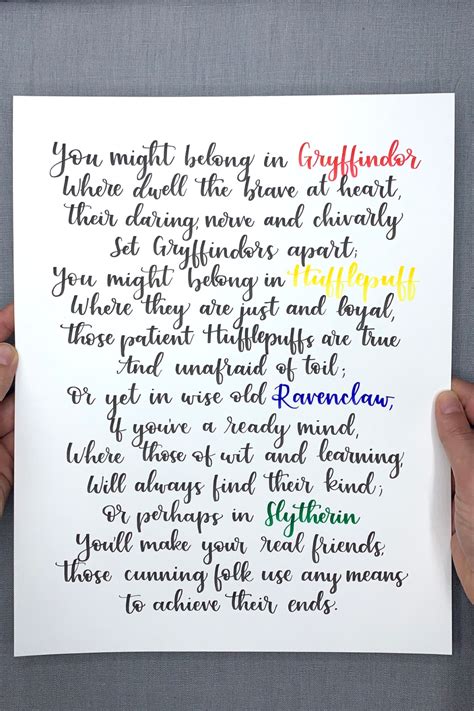 You might belong in Gryffindor
Where dwell the brave at heart,
their daring, nerve and chivarly
Set Gryffindors apart;
You might belong in Hufflepuff
Where they are just and loyal,
those patient Hufflepuffs are true
And unafraid of toil;
Or yet in wise old Ravenclaw,
If you've a ready mind,
Where those of wit and learning,
Will always find their kind;
Or perhaps in Slytherin
You'll make your real friends,
those cunning folk use any means
to achieve their ends.